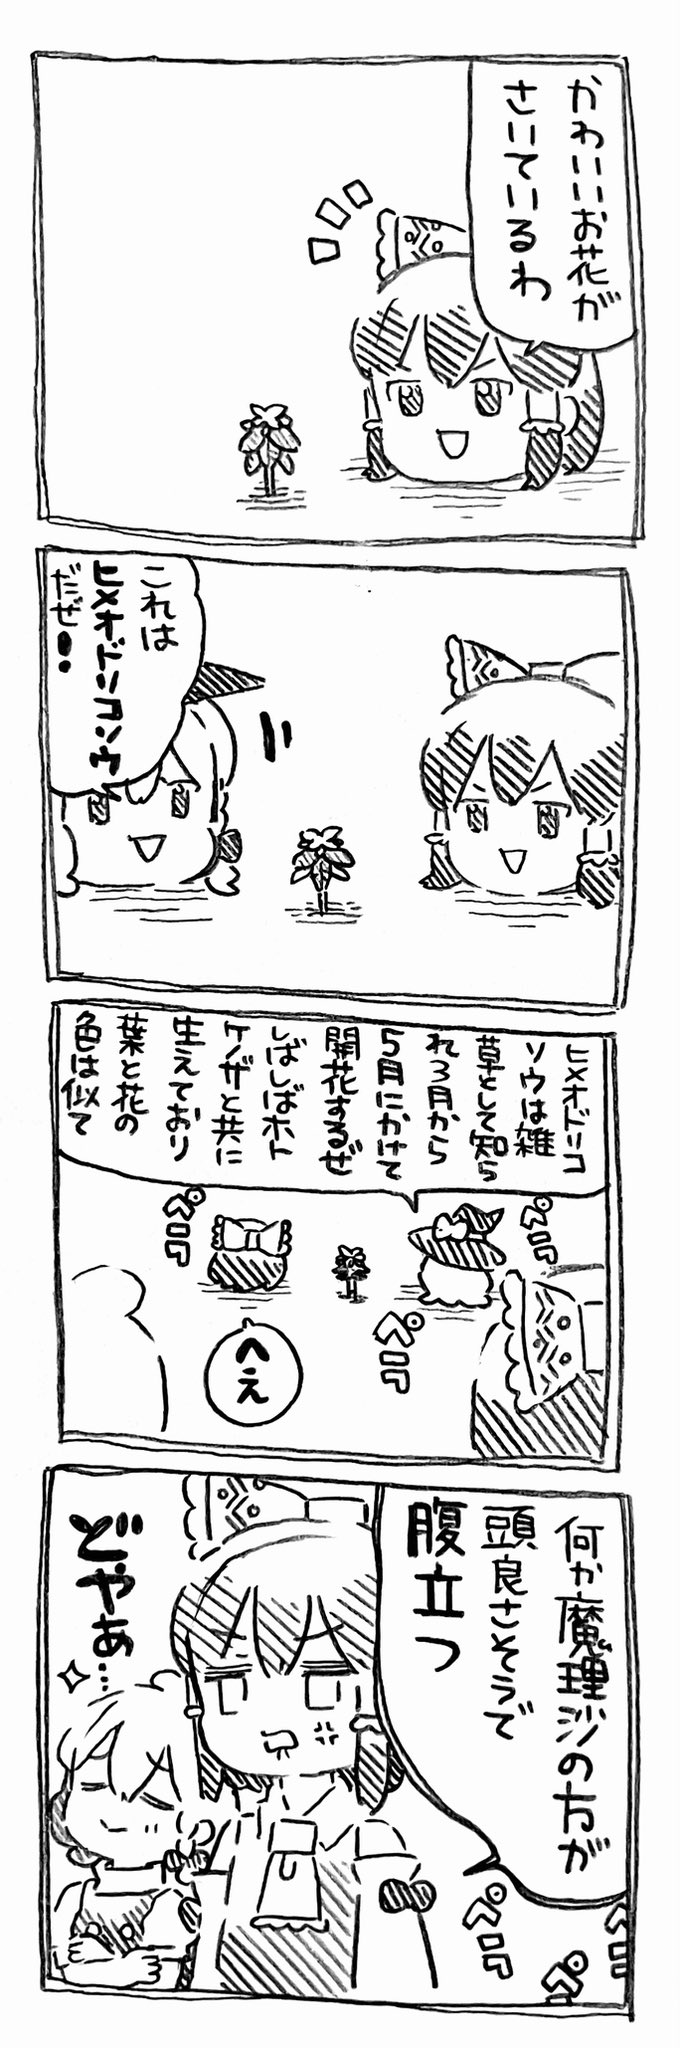 かわいいお花が
さいているわ
これは
ヒメオドリコソウ
だぜ!!
ヒメオドリコ
ソウは雑
草として知ら
れ3月から
5月にかけて
開花するぜ
しばしばホト
ケノザと共に
生えており
葉と花の
色は似て
ペラ
ペラ
ペラ
へえ
何か魔理沙の方が
頭良さそうで
腹立つ
どやぁ…
ペラ
ペラ